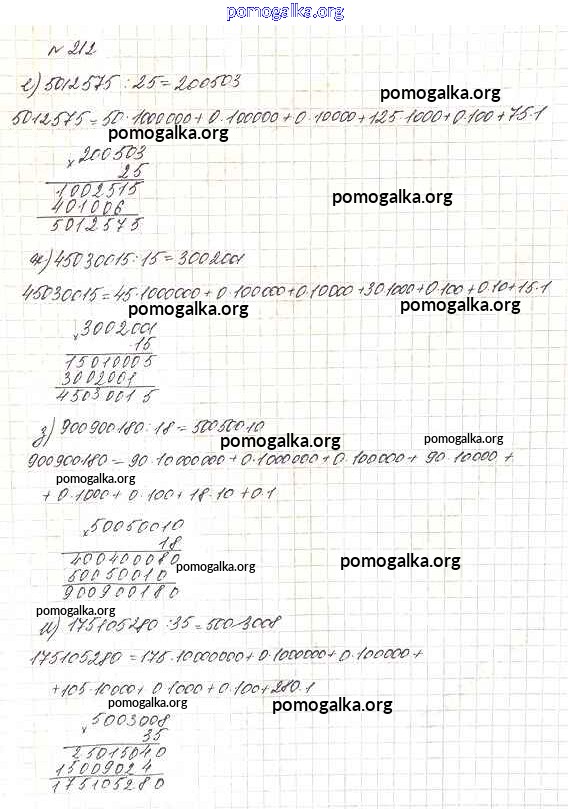 pomogalka.org
№ 212
е) 5012575 : 25 = 200503
pomogalka.org
5012575 = 50·1000000 + 0·100000 + 0·10000 + 125·1000 + 0·100 + 75·1
pomogalka.org
× 200503
25
1002515
401006
5012575
pomogalka.org
ж) 45030015 : 15 = 3002001
45030015 = 45·1000000 + 0·100000 + 0·10000 + 30·1000 + 0·100 + 0·10 + 15·1
pomogalka.org pomogalka.org
× 3002001
15
15010005
3002001
45030015
з) 900900180 : 18 = 50050010
pomogalka.org pomogalka.org
900900180 = 90·10000000 + 0·1000000 + 0·100000 + 90·10000 +
pomogalka.org
+ 0·1000 + 0·100 + 18·10 + 0·1
× 50050010
18
400400080
50050010
900900180
pomogalka.org pomogalka.org
pomogalka.org
и) 175105280 : 35 = 5003008
175105280 = 175·10000000 + 0·1000000 + 0·100000 +
+ 105·10000 + 0·1000 + 0·100 + 280·1
pomogalka.org pomogalka.org
× 5003008
35
25015040
15009024
175105280